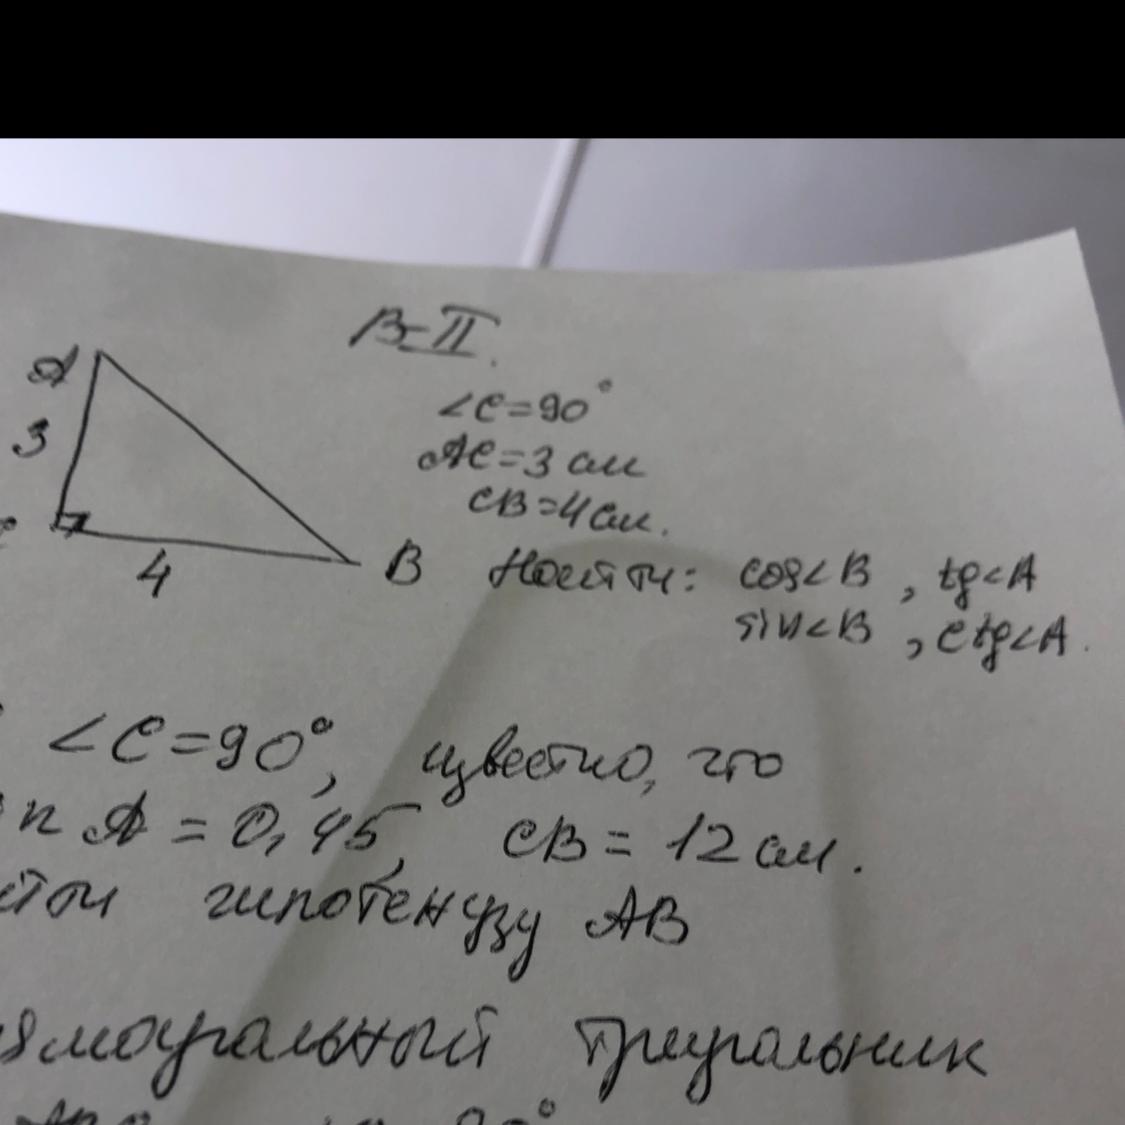 В-II.
A
3
C
4
B
∠C=90°
AC=3 см
CB=4см.
Найти: cos∠B, tg∠A
sin∠B, ctg∠A.
∠C=90°, известно, что
n A = 0,45, CB = 12 см.
йти гипотенузу AB
ямоугальный треугальник